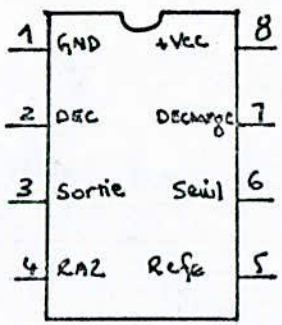 1 GND +VCC 8
2 DEC DECHARGE 7
3 Sortie Seuil 6
4 RAZ Refce 5